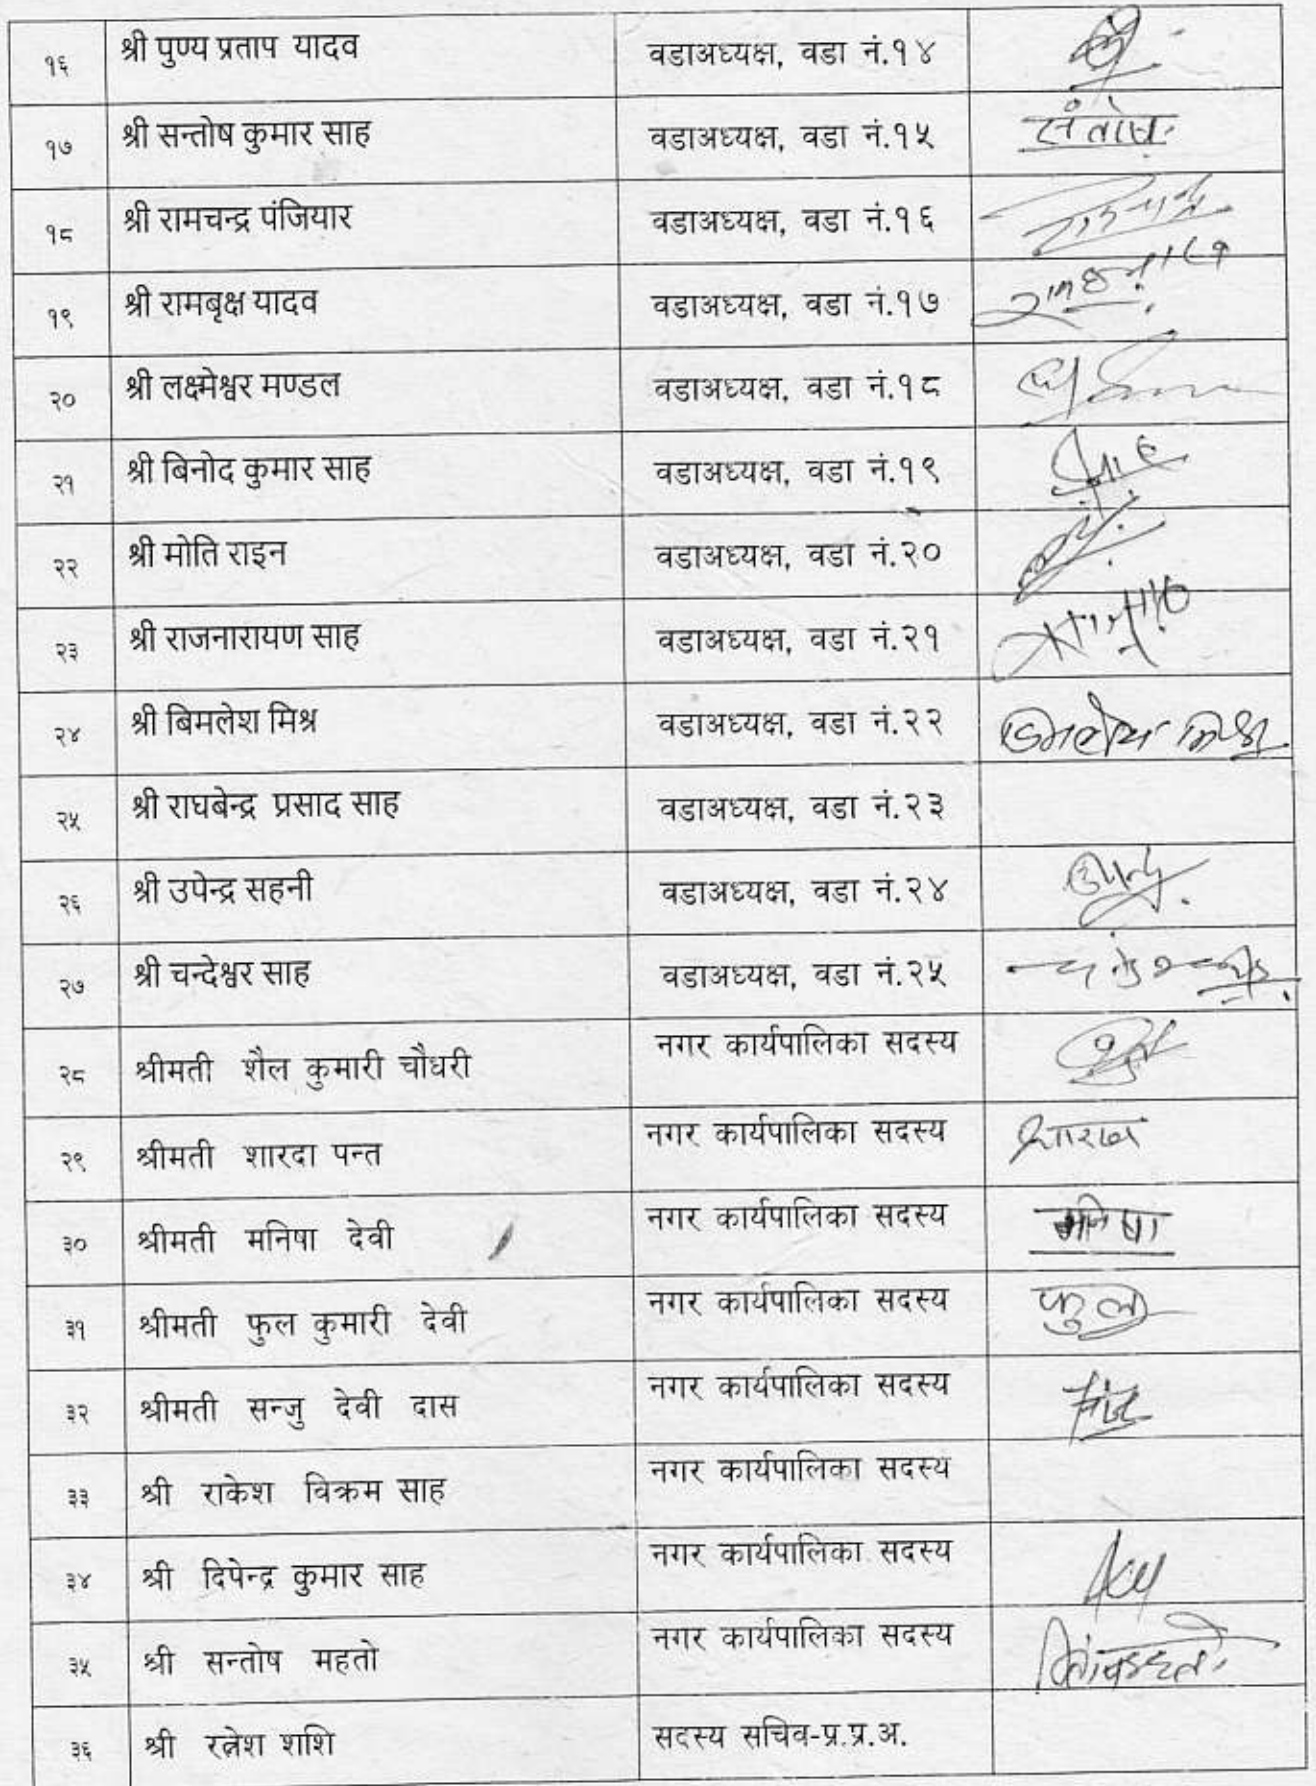 १६ श्री पुण्य प्रताप यादव वडाअध्यक्ष, वडा नं.१४
१७ श्री सन्तोष कुमार साह वडाअध्यक्ष, वडा नं.१५ संतोष
१८ श्री रामचन्द्र पंजियार वडाअध्यक्ष, वडा नं.१६
१९ श्री रामबृक्ष यादव वडाअध्यक्ष, वडा नं.१७
२० श्री लक्ष्मेश्वर मण्डल वडाअध्यक्ष, वडा नं.१८
२१ श्री बिनोद कुमार साह वडाअध्यक्ष, वडा नं.१९
२२ श्री मोति राइन वडाअध्यक्ष, वडा नं.२०
२३ श्री राजनारायण साह वडाअध्यक्ष, वडा नं.२१
२४ श्री बिमलेश मिश्र वडाअध्यक्ष, वडा नं.२२
२५ श्री राघबेन्द्र प्रसाद साह वडाअध्यक्ष, वडा नं.२३
२६ श्री उपेन्द्र सहनी वडाअध्यक्ष, वडा नं.२४
२७ श्री चन्देश्वर साह वडाअध्यक्ष, वडा नं.२५
२८ श्रीमती शैल कुमारी चौधरी नगर कार्यपालिका सदस्य
२९ श्रीमती शारदा पन्त नगर कार्यपालिका सदस्य शारदा
३० श्रीमती मनिषा देवी नगर कार्यपालिका सदस्य मनिषा
३१ श्रीमती फुल कुमारी देवी नगर कार्यपालिका सदस्य फुल
३२ श्रीमती सन्जु देवी दास नगर कार्यपालिका सदस्य
३३ श्री राकेश विक्रम साह नगर कार्यपालिका सदस्य
३४ श्री दिपेन्द्र कुमार साह नगर कार्यपालिका सदस्य
३५ श्री सन्तोष महतो नगर कार्यपालिका सदस्य
३६ श्री रत्नेश शशि सदस्य सचिव-प्र.प्र.अ.